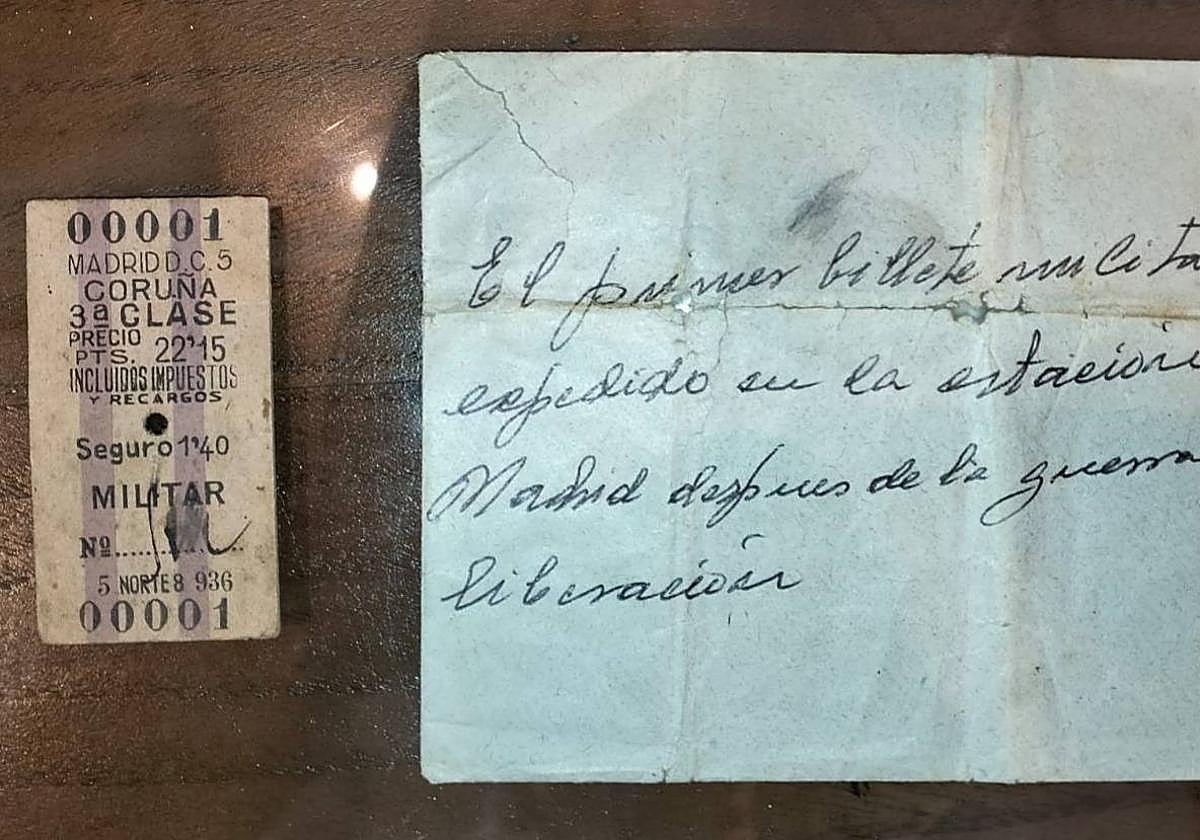 00001
MADRID D.C. 5
CORUÑA
3ª CLASE
PRECIO
PTS. 22'15
INCLUIDOS IMPUESTOS
Y RECARGOS
Seguro 1'40
MILITAR
Nº
5 NORTE 8 936
00001
El primer billete milita
expedido en la estación
Madrid despues de la guerra
liberación